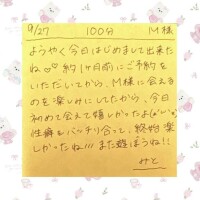 9/27 100分 M様
ようやく今日はじめまして出来た
ね♡♡ 約1ヶ月前にご予約を
いただいてから、M様に会える
のを楽しみにしてたから、今日
初めて会えて嬉しかったよ(*'ω'*)
性癖もバッチリ合って、終始楽
しかったね!!! また遊ぼうね!!
みと